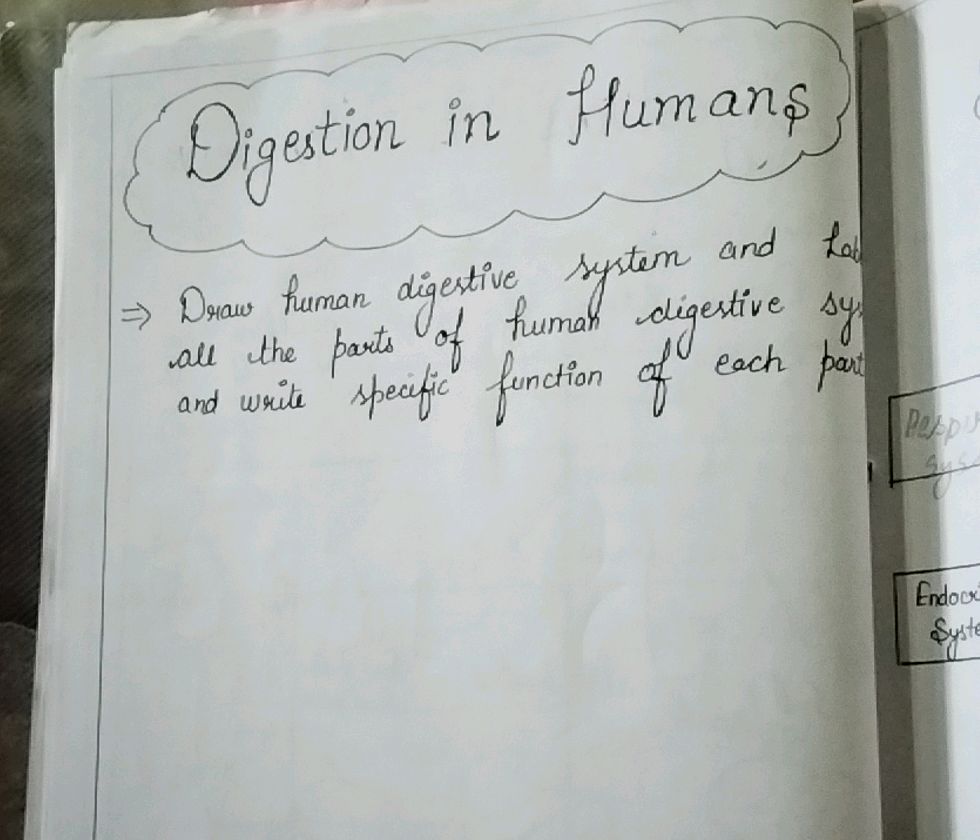 Digestion in Humans
⇒ Draw human digestive system and Lab
all the parts of human digestive sys
and write specific function of each part
Endocri
Syste